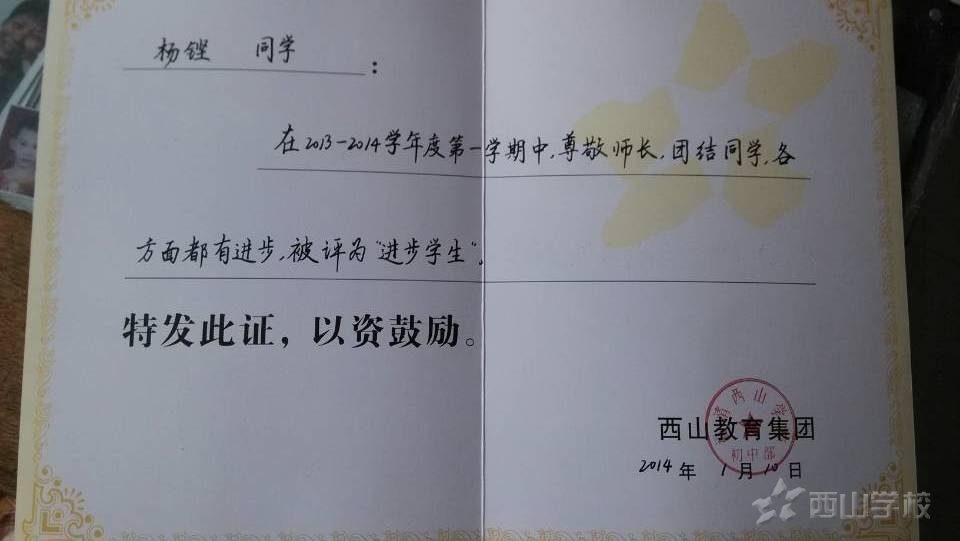 杨铿 同学:
在2013-2014学年度第一学期中,尊敬师长,团结同学,各
方面都有进步,被评为“进步学生”。
特发此证，以资鼓励。
西山教育集团
清西山学
初中部
2014年1月10日
西山学校